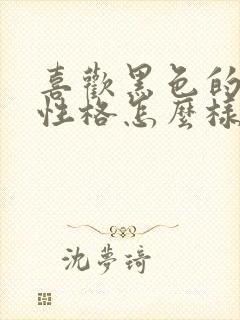 喜歡黑色的
性格怎麼樣
沈夢琦